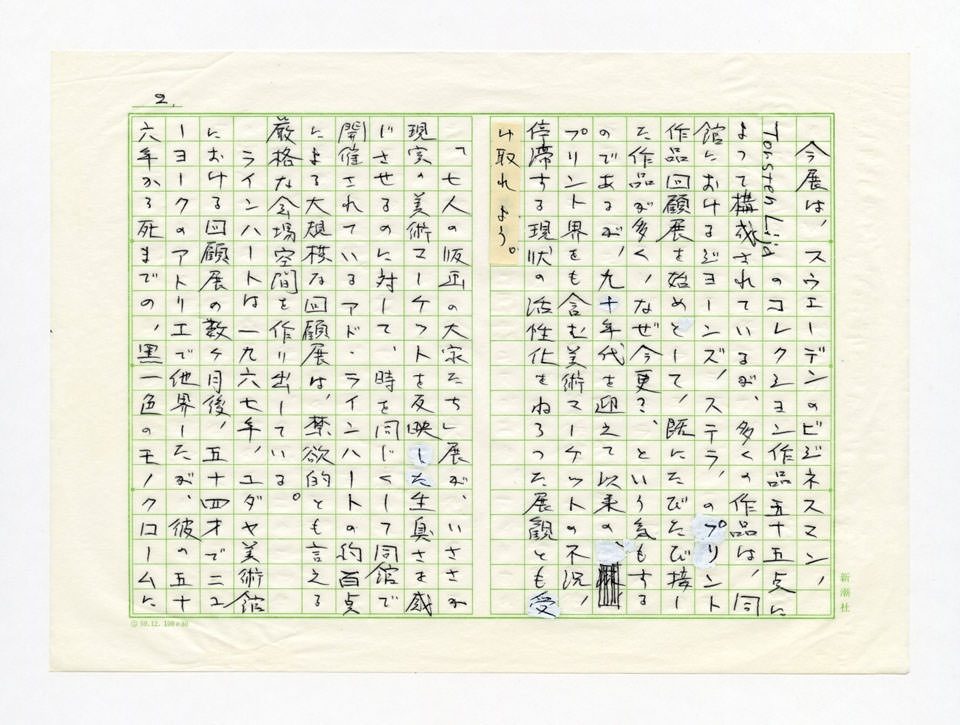 2.
今展は、スウェーデンのビジネスマン、
Torsten Lilja のコレクション作品五十五点に
よって構成されているが、多くの作品は、同
館におけるジョーンズ、ステラ、のプリント
作品回顧展を始めとして、既にたびたび接し
た作品が多く、なぜ今更?、という気もする
のであるが、九十年代を迎えて以来の、
プリント界をも含む美術マーケットの不況、
停滞する現状の活性化をねらった展観とも受
け取れよう。
「七人の版画の大家たち」展が、いささか
現実の美術マーケットを反映した生臭さを感
じさせるのに対して、時を同じくして同館で
開催されているアド・ラインハートの約百点
による大規模な回顧展は、禁欲的とも言える
厳格な会場空間を作り出している。
ラインハートは一九六七年、ユダヤ美術館
における回顧展の数ヶ月後、五十四才でニュ
ーヨークのアトリエで他界したが、彼の五十
六年から死までの、黒一色のモノクロームに
新潮社